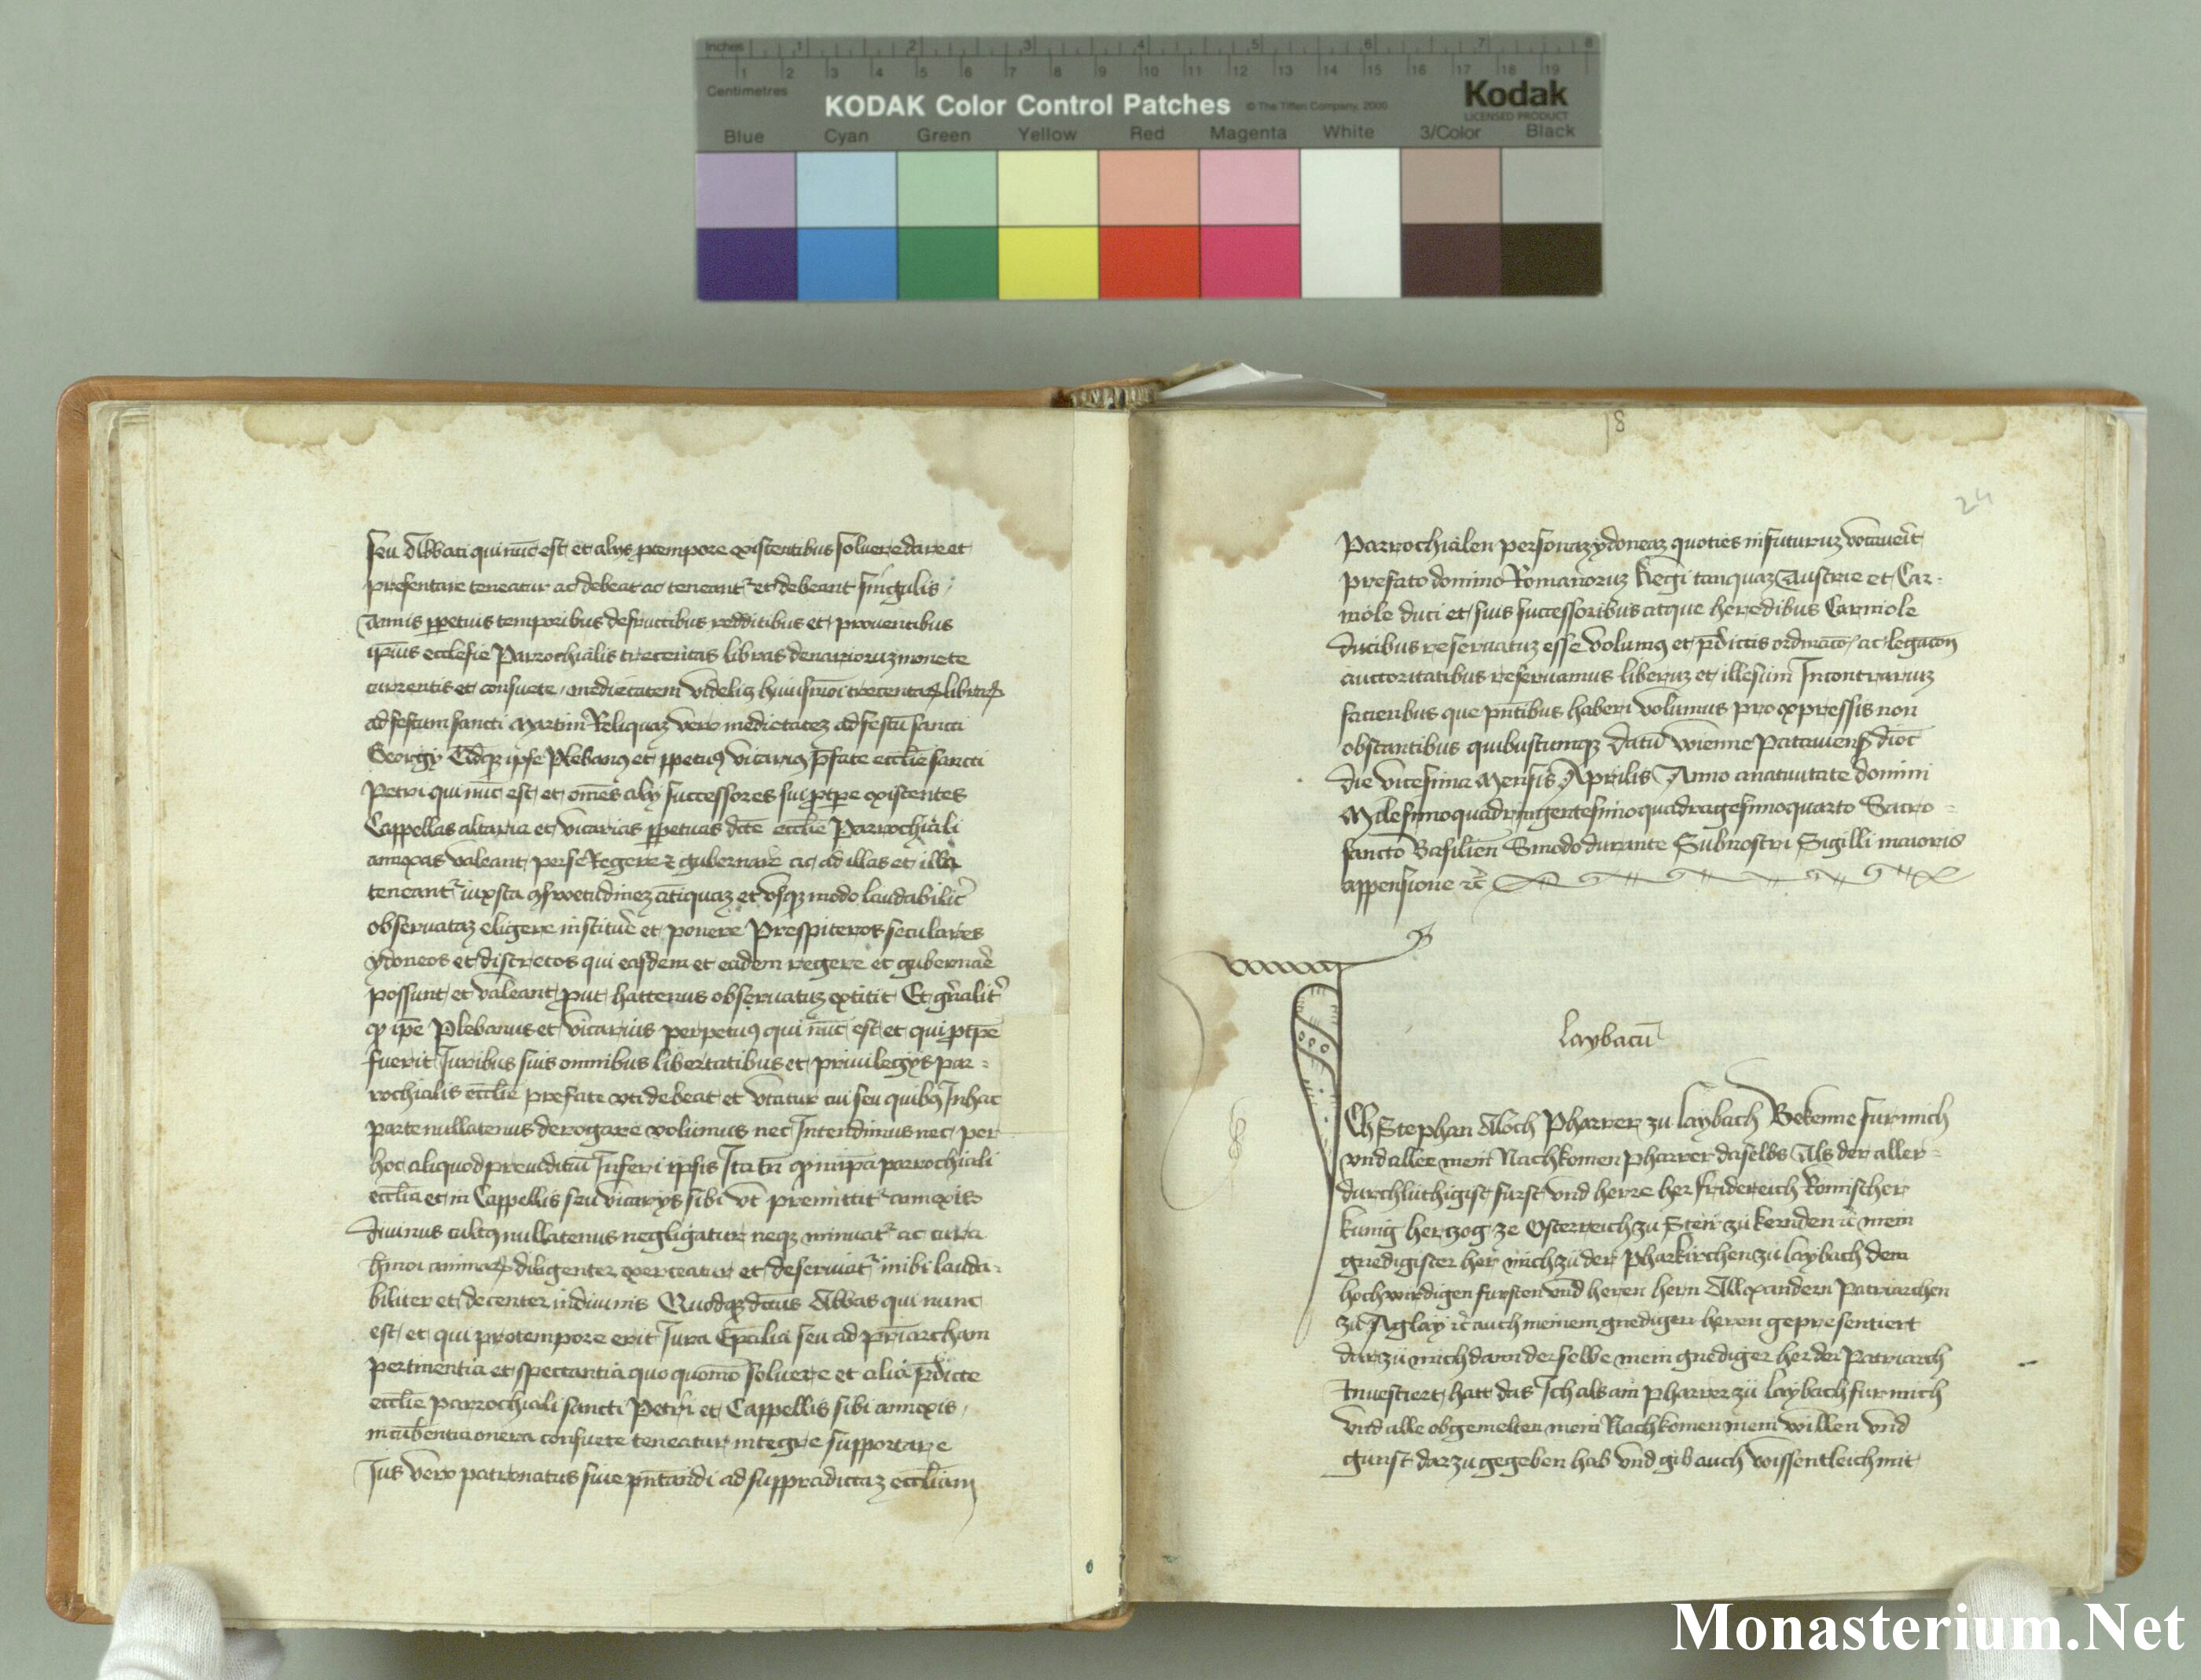 Inches 1 2 3 4 5 6 7 8
1 2 3 4 5 6 7 8 9 10 11 12 13 14 15 16 17 18 19
Centimetres
KODAK Color Control Patches © The Tiffen Company, 2000 Kodak
LICENSED PRODUCT
Blue Cyan Green Yellow Red Magenta White 3/Color Black
seu Abbati qui nūc est et alys ꝓtempore existentibus soluere dare et
presentare teneatur ac debeat ac teneant᷑ et debeant singulis
Annis ꝑpetuis temporibus de fructibus redditibus et prouentibus
ip̄ius ecclesie Parrochialis trecentas libras denarioruz monete
currentis et consuete medietatem videlicꝫ huiusmōi trecentaꝝ libraꝝ
ad festum sancti Martini Reliquaz vero medietatez ad festū sancti
Georgy Eidqꝫ ipse Plebanꝰ et ꝑpetuꝰ vicariꝰ p̄fate ecclīe sancti
Petri qui nūc est et om̄es aly successores sui ꝓtp̄e existentes
Cappellas altaria et vicarias ꝑpetuas dc̄te ecclīe Parrochiali
annexas valeant per se Regere ⁊ gubernare ac ad illas et illa
teneant᷑ iuxta ꝯswetudinez antiquaz et vsqꝫ modo laudabilit̾
obseruataz eligere instituēe et ponere Prespiteros seculares
ydoneos et discretos qui easdem et eadem regere et gubernaēe
possunt et valeant ꝓut hactenus obseruatuz extitit Et gn̄alit̾
ꝙ ip̄e Plebanus et vicarius perpetuꝰ qui nūc est et qui ꝓtp̄e
fuerit Juribus suis omnibus libertatibus et priuilegys par=
rochialis ecclīe prefate vti debeat et vtatur cui seu quibꝰ Inhac
parte nullatenus derogare volumus nec Intendimus nec per
hoc aliquod preiudiciū Inferi ipsis Ita tn̄ ꝙ in ip̄a parrochiali
ecclīa et in Cappellis seu vicarys sibi vt premittit᷑ annexis
diuinus cultꝰ nullatenus negligatur neqꝫ minuat᷑ ac cura
hm̄oi animaꝝ diligenter exerceatur et deseruiat᷑ inibi lauda=
biliter et decenter in diuinis Quodqꝫ dc̄tus Abbas qui nunc
est et qui protempore erit Jura Ep̄alia seu ad pr̄iarcham
pertinentia et spectantia quo quomō soluere et alia p̄dicte
ecclīe parrochiali sancti Petri et Cappellis sibi annexis
incūbentia onera consuete teneatur integre supportare
Jus vero patronatus siue pn̄tandi ad suppradictaz ecclīam
24
Parrochialen personaz ydoneaz quoties in futuruz vocauēit
prefato domino Romanoruz Regi tanquaz Austrie et Car=
niole duci et suis successoribus atque heredibus Carniole
ducibus reseruatuz esse volumꝰ et p̄dictis ordinaco᷒ ac legacon
auctoritatibus reseruamus liberuz et illesum Incontrariuz
facientibus que pn̄tibus haberi volumus pro expressis non
obstantibus quibuscumqꝫ Datū Wienne Patauiens̄ dioc̄
die vicesima Mensis Aprilis Anno a natiuitate domini
Milesimoquadringentesimoquadragesimoquarto Sacro=
sancto Basilien̄ Sinodo durante Sub nostri Sigilli maioris
appensione ⁊c̄
laybacū
Ich Stephan Aloch Pharrer zu laybach Bekenne fur mich
vnd aller mein Nachkomen pharrer daselbs Als der aller=
durchluchtigist furst vnd herre her fridereich Romischer
kunig hertzog ze Osterreich zu Steir zu kernden ⁊c̄ mein
gnedigister her mich zu der Pharkirchen zu laybach dem
hochwirdigen fursten vnd heren hern Allexandern Patriarchen
zu Aglay ⁊c̄ auch meinem gnedigen heren gepresentiert
darzu mich dann derselbe mein gnediger her der Patriarch
Inuestiert hatt das Ich als ain pharrer zu laybach fur mich
vnd alle obgemelten mein Nachkomen mein willen vnd
gunst darzu gegeben hab vnd gib auch wissentleich mit
Monasterium.Net